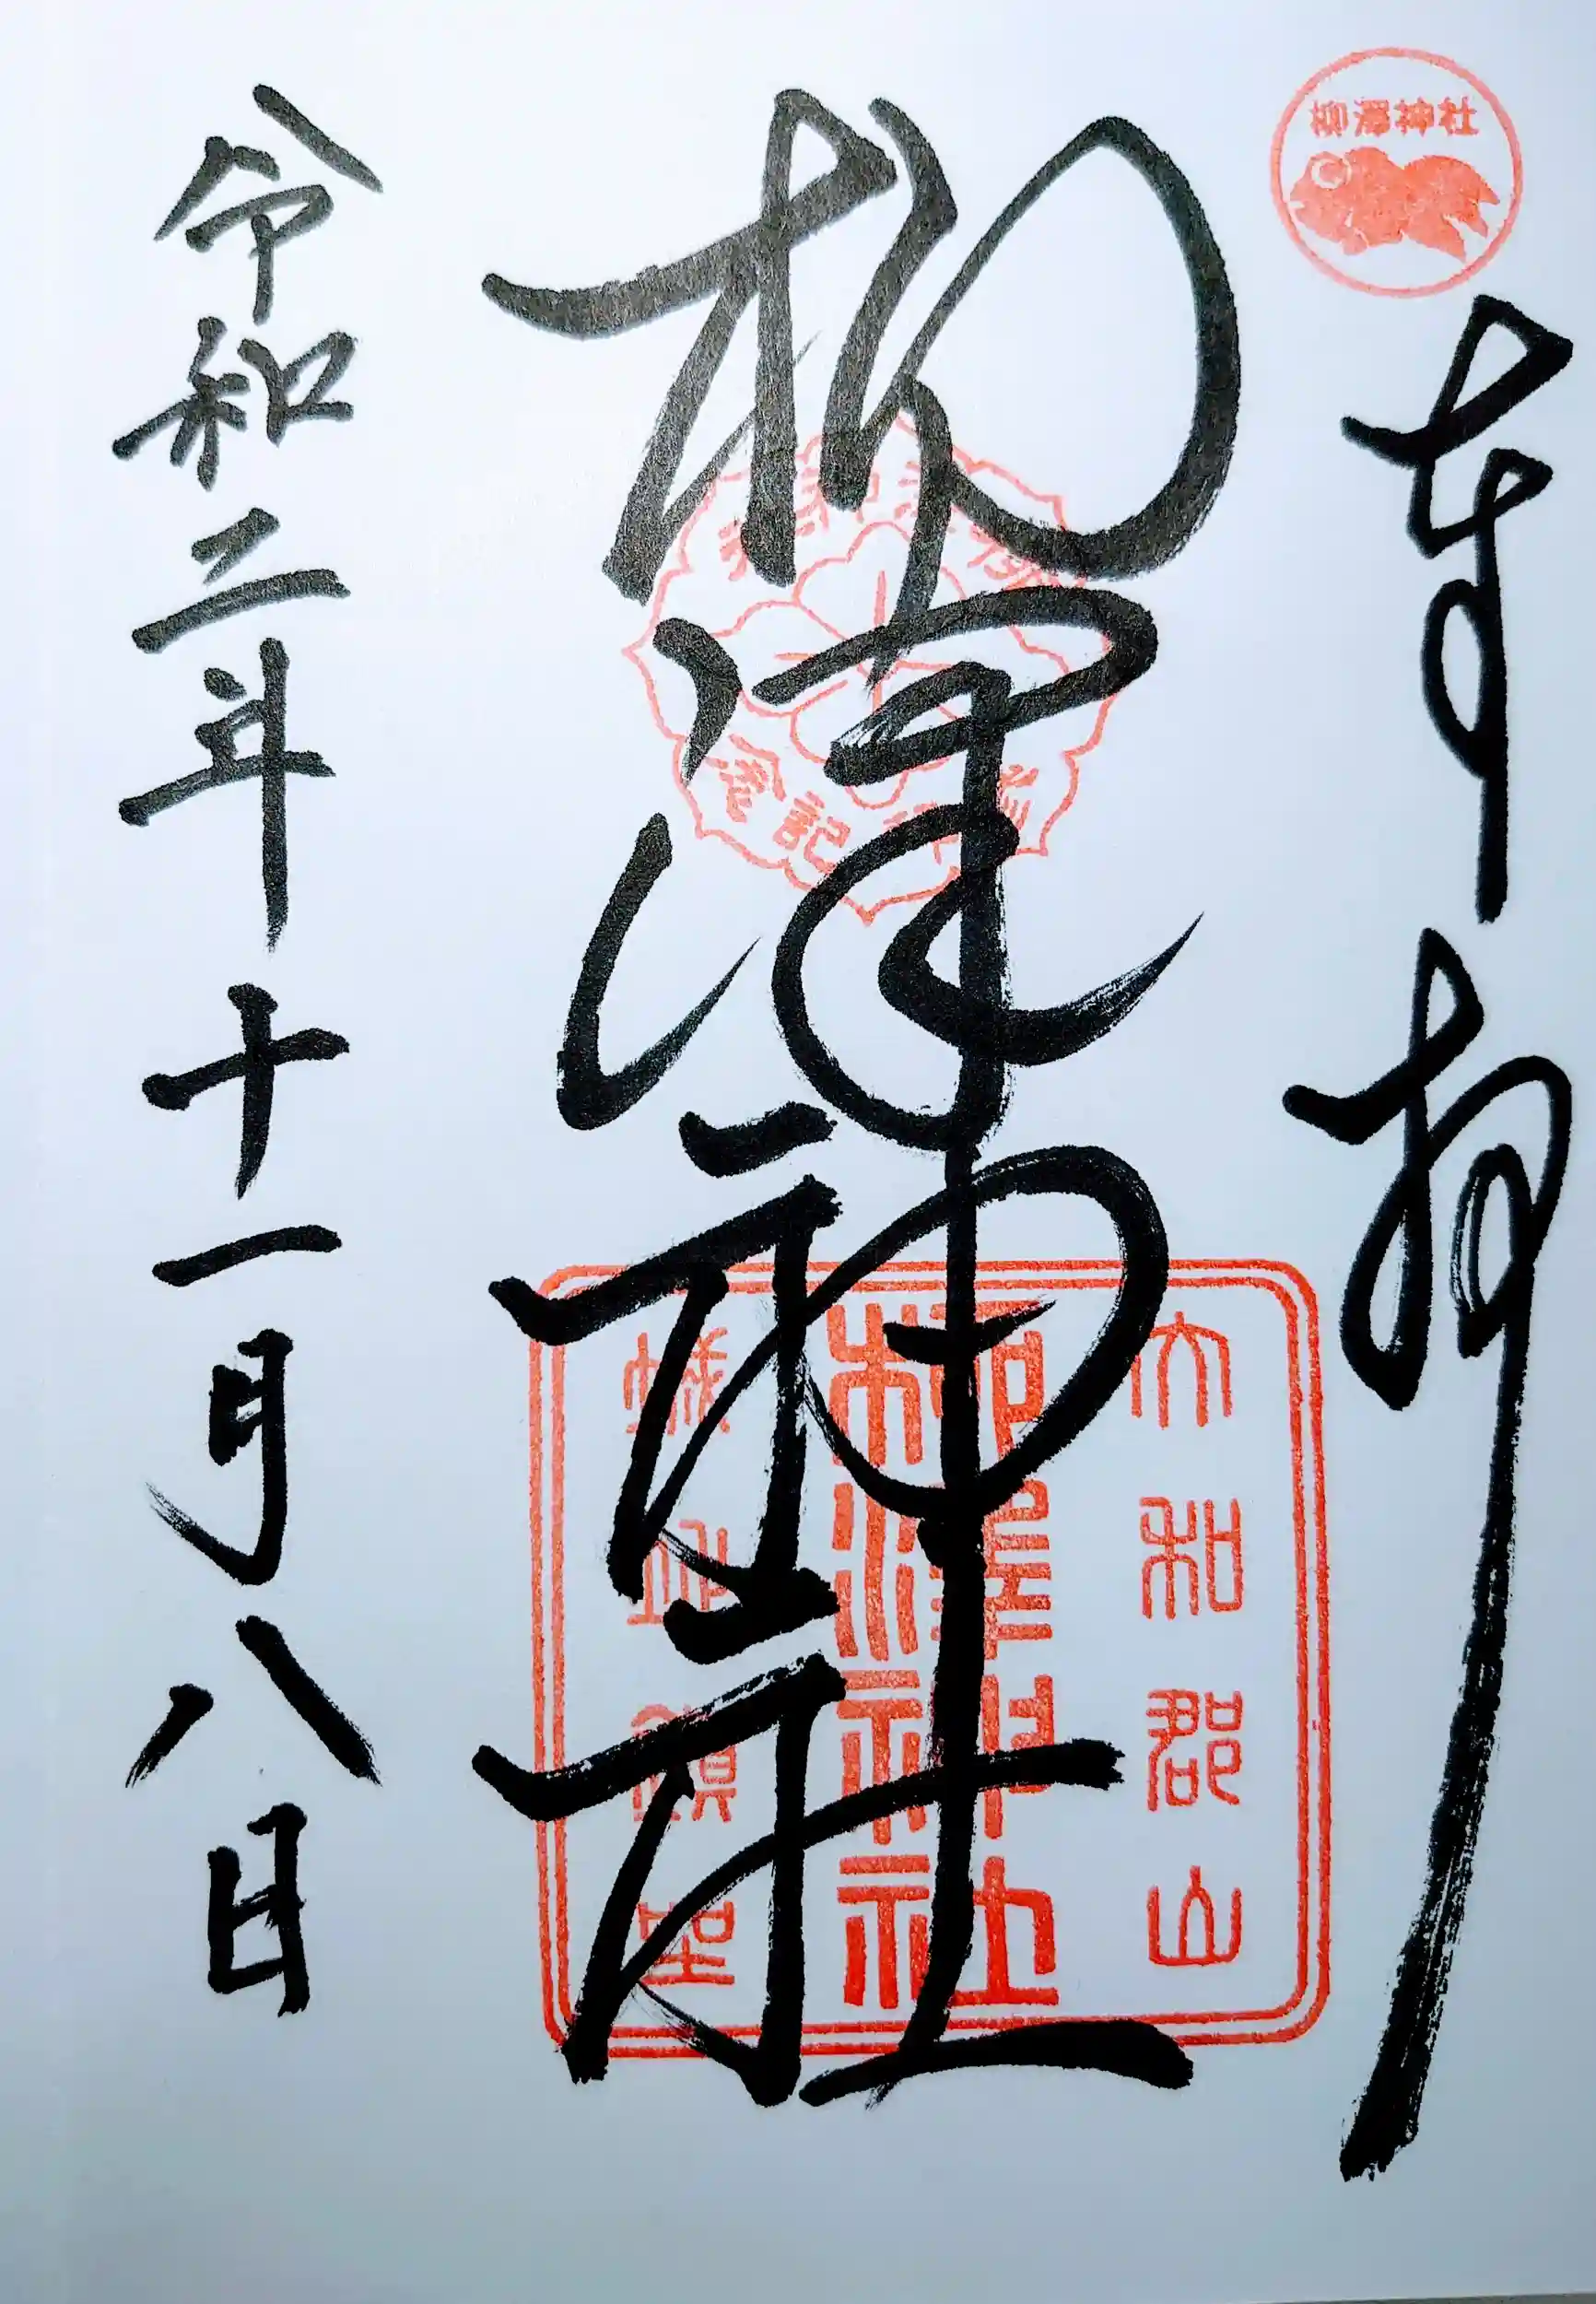 柳澤神社
奉拝
柳澤神社
大和郡山
柳澤神社
城址鎮座
令和二年十一月八日